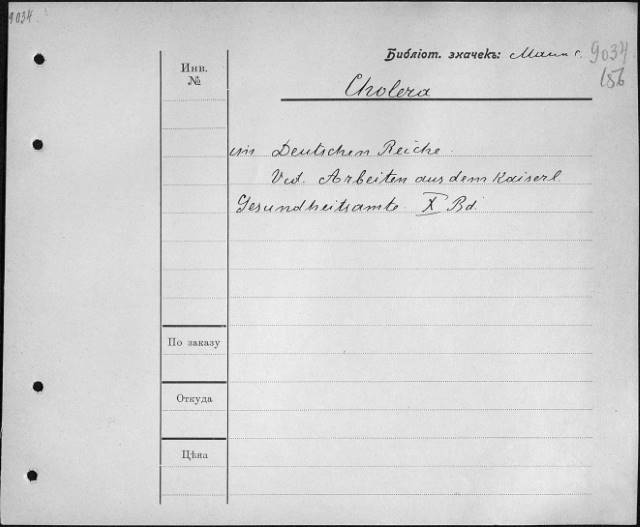 9034
Библіот. значекъ: 9034
156
Инв.
№
Cholera
im Deutschen Reiche.
Vid. Arbeiten aus dem Kaiserl
Gesundheitsamte X Bd.
По заказу
Откуда
Цѣна